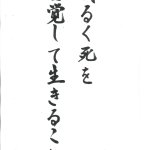 るく死を
覚して生きるこ